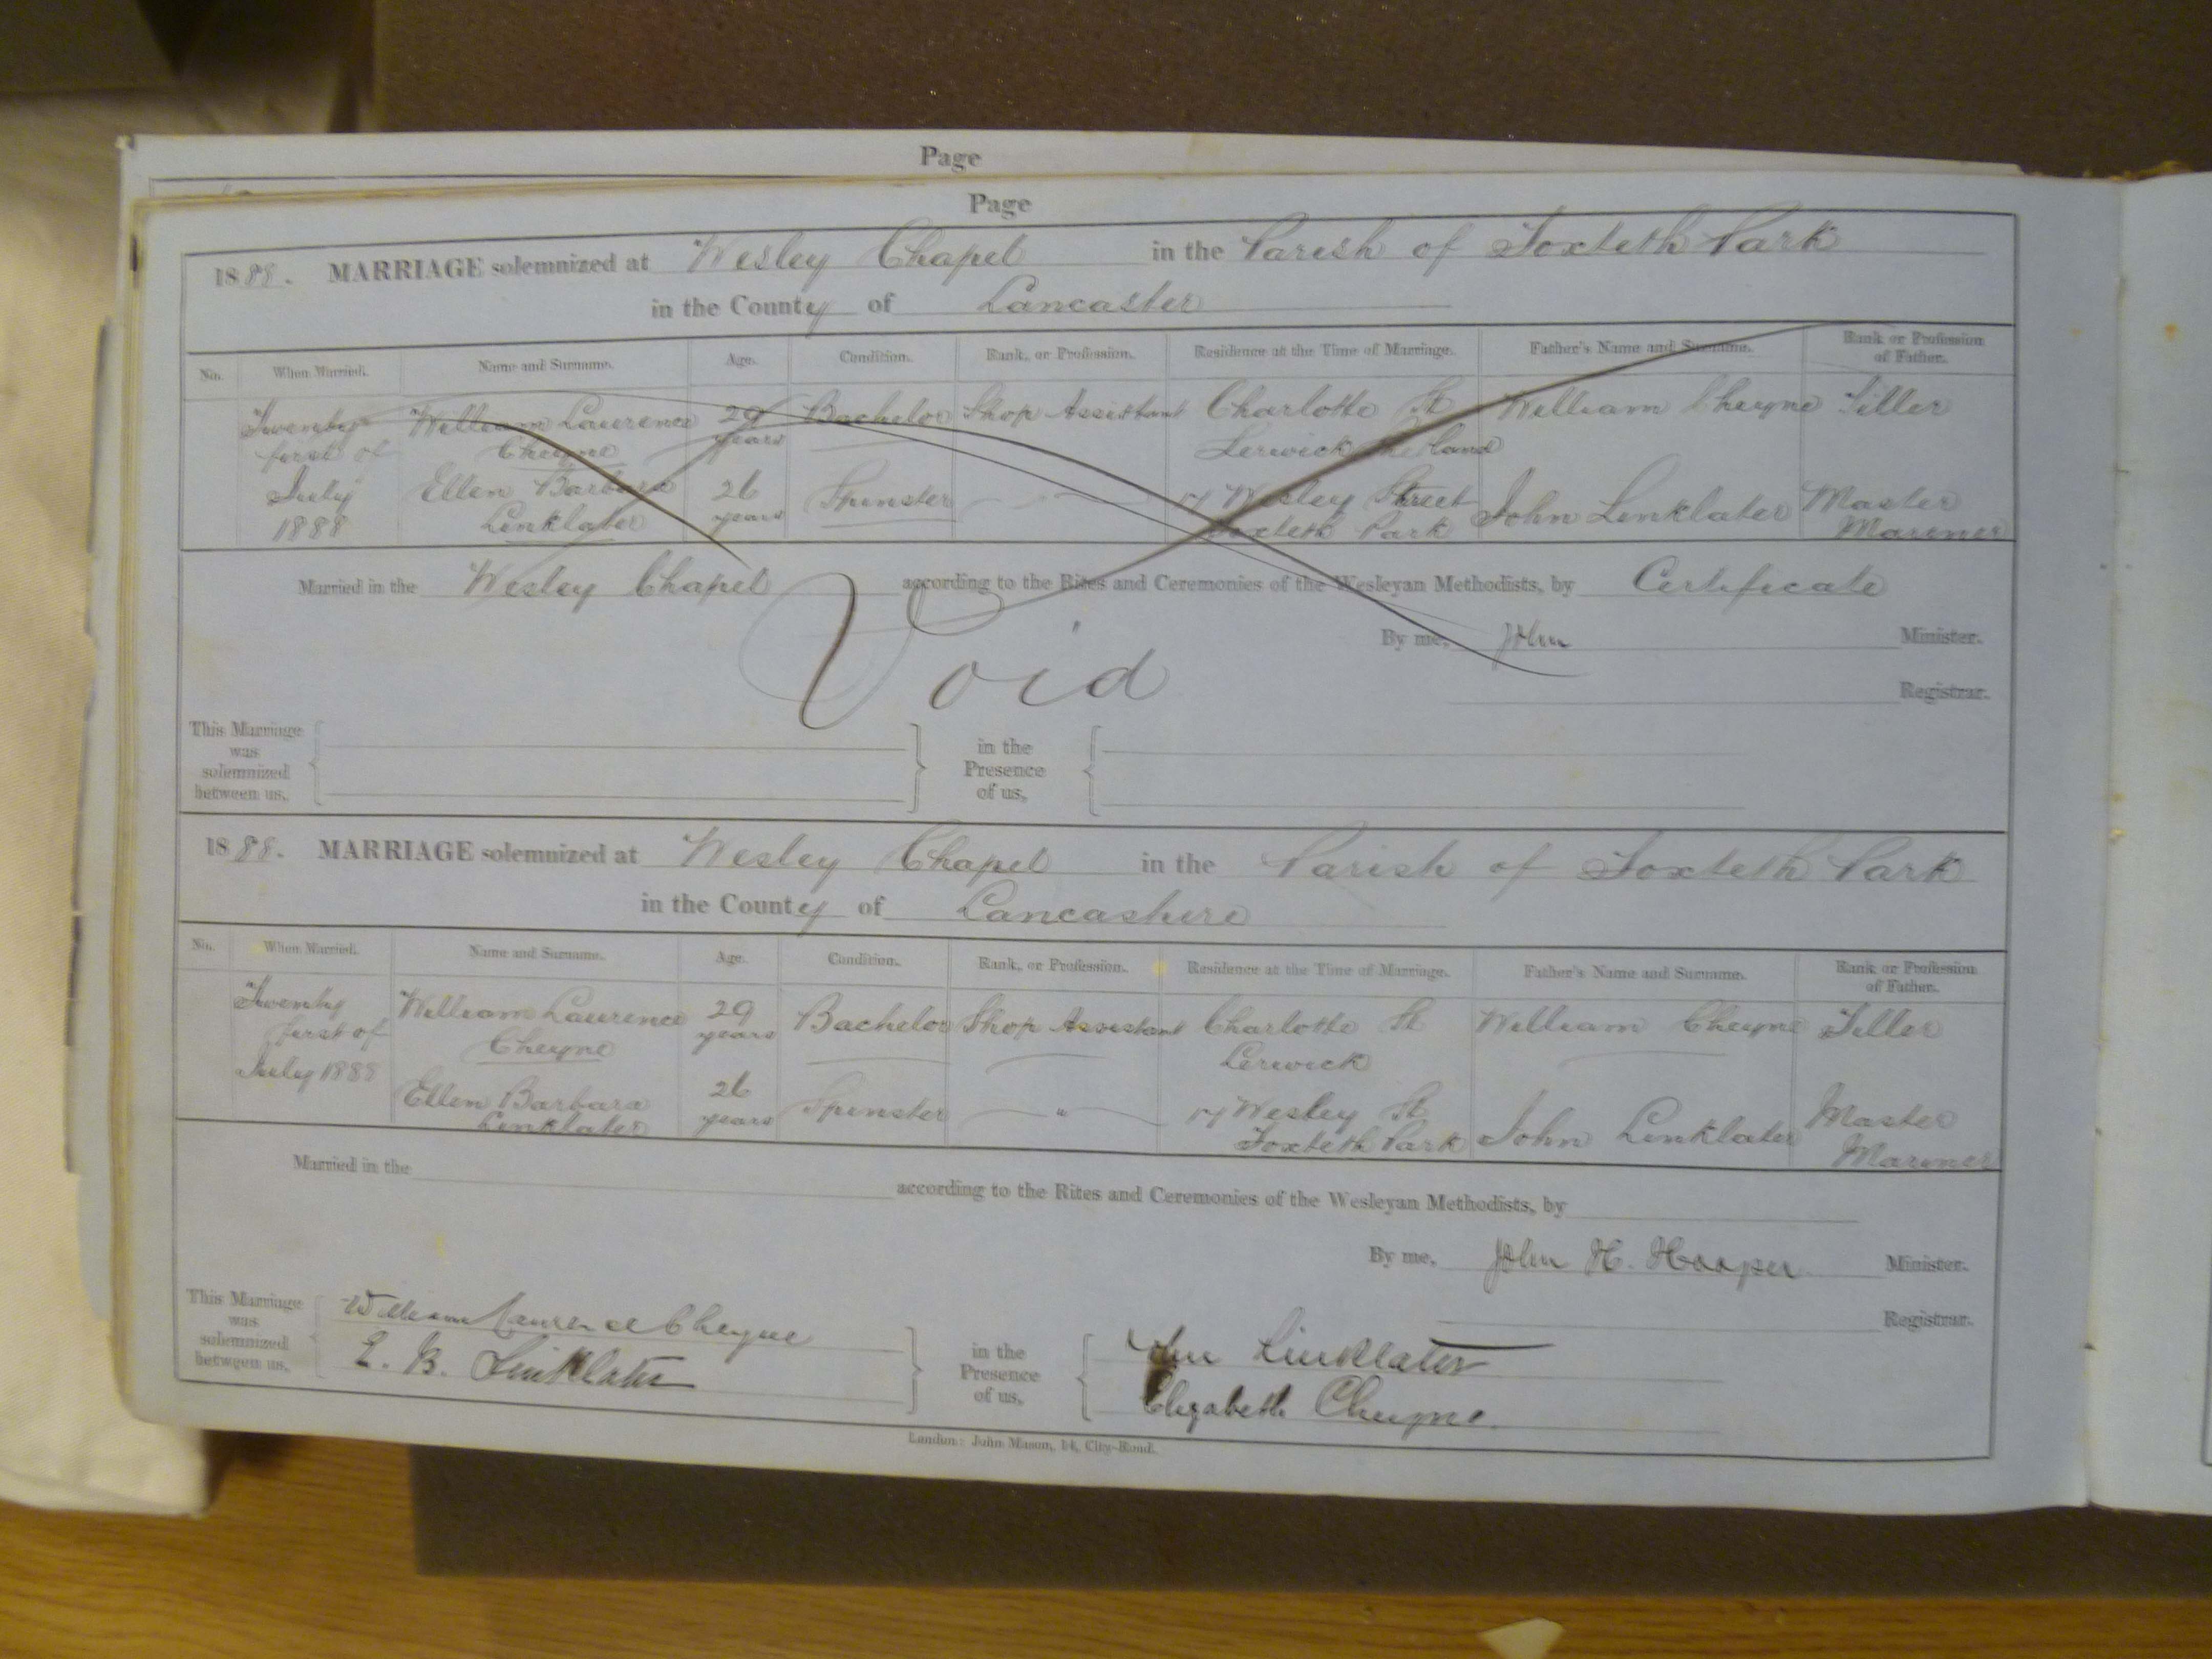 Page
Page
1888. MARRIAGE solemnized at Wesley Chapel in the Parish of Toxteth Park
in the County of Lancaster
No. When Married. Name and Surname. Age. Condition. Rank, or Profession. Residence at the Time of Marriage. Father's Name and Surname. Rank or Profession of Father.
Twenty first of July 1888 William Laurence Cheyne 29 years Bachelor Shop Assistant Charlotte St Lerwick Shetland William Cheyne Tiller
Ellen Barbara Linklater 26 years Spinster 17 Wesley Street Toxteth Park John Linklater Master Mariner
Married in the Wesley Chapel according to the Rites and Ceremonies of the Wesleyan Methodists, by Certificate
By me, John Minister.
Void
Registrar.
This Marriage was solemnized between us, in the Presence of us,
1888. MARRIAGE solemnized at Wesley Chapel in the Parish of Toxteth Park
in the County of Lancashire
No. When Married. Name and Surname. Age. Condition. Rank, or Profession. Residence at the Time of Marriage. Father's Name and Surname. Rank or Profession of Father.
Twenty first of July 1888 William Laurence Cheyne 29 years Bachelor Shop Assistant Charlotte St Lerwick William Cheyne Tiller
Ellen Barbara Linklater 26 years Spinster " 17 Wesley St Toxteth Park John Linklater Master Mariner
Married in the according to the Rites and Ceremonies of the Wesleyan Methodists, by
By me, John H. Hooper Minister.
Registrar.
This Marriage was solemnized between us, William Laurence Cheyne in the Presence of us, John Linklater
E. B. Linklater Elizabeth Cheyne
London: John Mason, 14, City-Road.